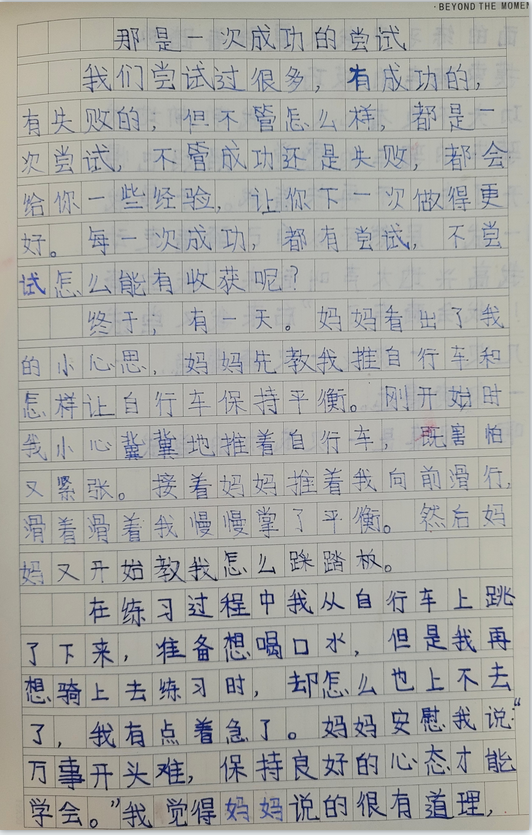 ·BEYOND THE MOMEN
那是一次成功的尝试
我们尝试过很多，有成功的，
有失败的，但不管怎么样，都是一
次尝试，不管成功还是失败，都会
给你一些经验，让你下一次做得更
好。每一次成功，都有尝试，不尝
试怎么能有收获呢？
终于，有一天。妈妈看出了我
的小心思，妈妈先教我推自行车和
怎样让自行车保持平衡。刚开始时
我小心冀冀地推着自行车，既害怕
又紧张。接着妈妈推着我向前滑行，
滑着滑着我慢慢掌了平衡。然后妈
妈又开始教我怎么踩踏板。
在练习过程中我从自行车上跳
了下来，准备想喝口水，但是我再
想骑上去练习时，却怎么也上不去
了，我有点着急了。妈妈安慰我说：“
万事开头难，保持良好的心态才能
学会。”我觉得妈妈说的很有道理，